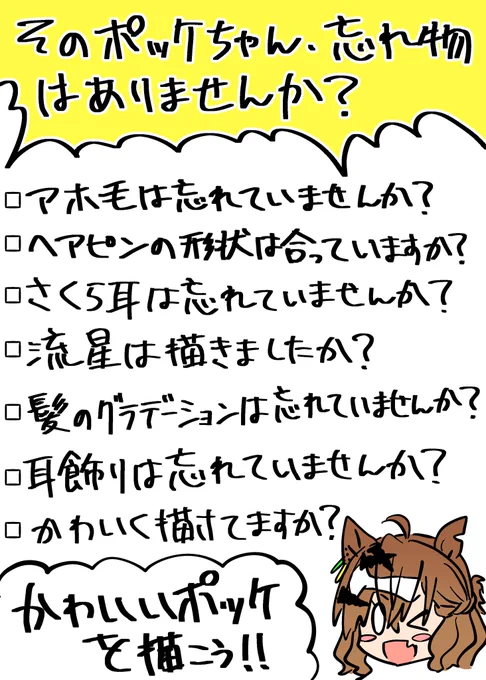 そのポッケちゃん、忘れ物
はありませんか?
□アホ毛は忘れていませんか?
□ヘアピンの形状は合っていますか?
□さくら耳は忘れていませんか?
□流星は描きましたか?
□髪のグラデーションは忘れていませんか?
□耳飾りは忘れていませんか?
□かわいく描けてますか?
かわいいポッケ
を描こう!!